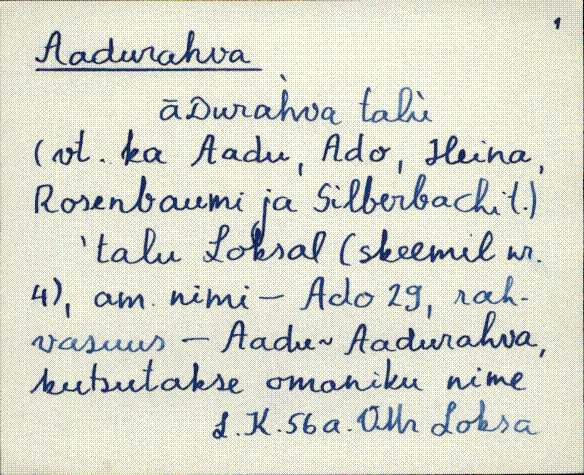 1
Aadurahva
āDurah̀va talù
(vt. ka Aadu, Ado, Heina,
Rosenbaumi ja Silberbachi t.)
'talu Loksal (skeemil nr.
4), am. nimi – Ado 29, rah-
vasuus – Aadu ~ Aadurahva,
kutsutakse omaniku nime
L.K. 56 a. Loksa